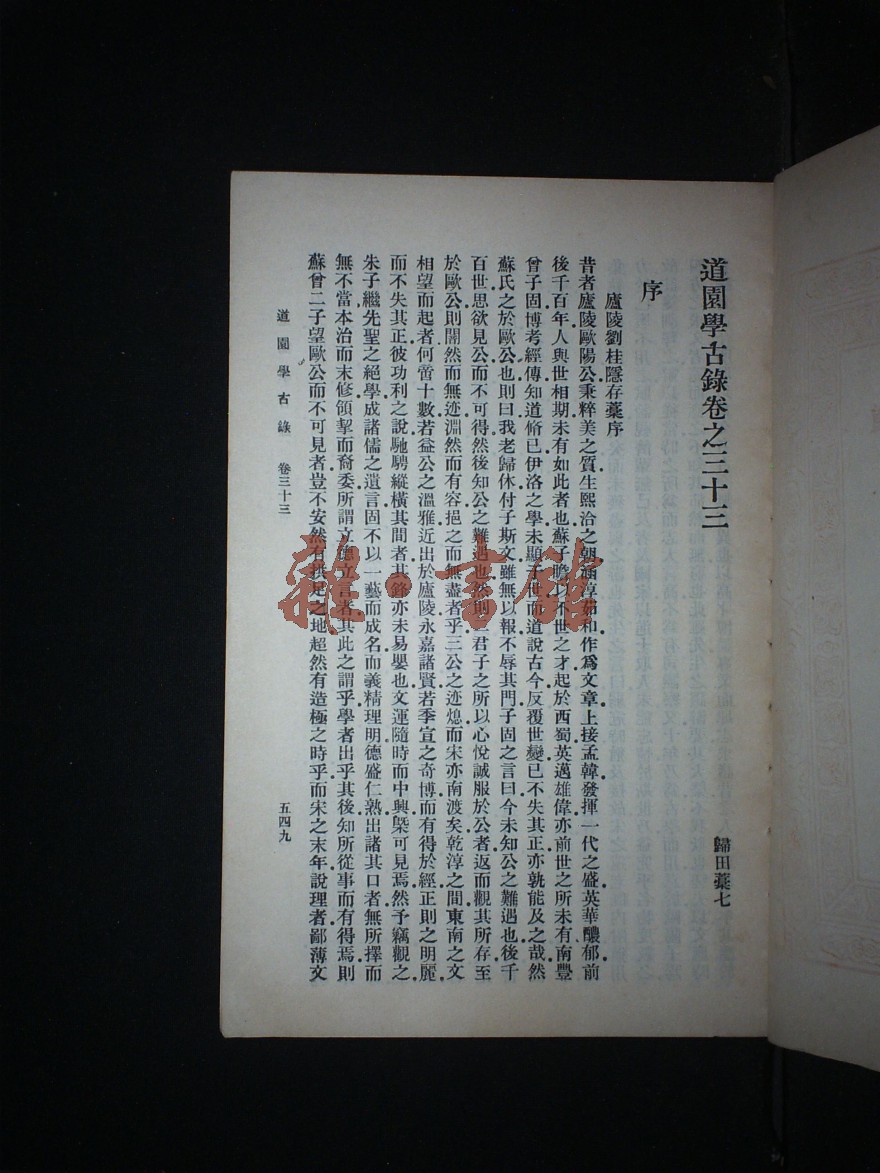 道園學古錄卷之三十三
歸田藁七
序
廬陵劉桂隱存藁序
昔者廬陵歐陽公秉粹美之質生熙洽之朝涵淳茹和作爲文章上接孟韓發揮一代之盛英華醲郁前
後千百年人與世相期未有如此者也蘇子瞻以不世之才起於西蜀英邁雄偉亦前世之所未有南豐
曾子固博考經傳知道脩已伊洛之學未顯于世而道說古今反覆世變已不失其正亦孰能及之哉然
蘇氏之於歐公也則曰我老歸休付子斯文雖無以報不辱其門子固之言曰今未知公之難遇也後千
百世思欲見公而不可得然後知公之難遇也然則二君子之所以心悅誠服於公者返而觀其所存至
於歐公則闇然而無迹淵然而有容挹之而無盡者乎三公之迹熄而宋亦南渡矣乾淳之間東南之文
相望而起者何啻十數若益公之溫雅近出於廬陵永嘉諸賢若季宣之奇博而有得於經正則之明麗
而不失其正彼功利之說馳騁縱橫其間者其鋒亦未易嬰也文運隨時而中興槩可見焉然予竊觀之
朱子繼先聖之絕學成諸儒之遺言固不以一藝而成名而義精理明德盛仁熟出諸其口者無所擇而
無不當本治而末修領挈而裔委所謂立德立言者其此之謂乎學者出乎其後知所從事而有得焉則
蘇曾二子望歐公而不可見者豈不安然有拱足之地超然有造極之時乎而宋之末年說理者鄙薄文
道園學古錄 卷三十三 五四九
雜·書館